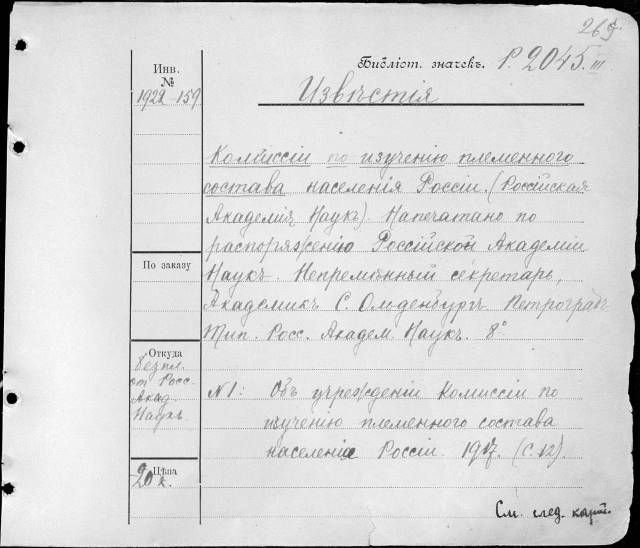 265
Библіот. значекъ. Р. 2045. III
Инв.
№
1922-159
Извѣстія
Комиссіи по изученію племенного
состава населенія Россіи. (Россійская
Академия Наукъ). Напечатано по
распоряженію Россійской Академіи
Наукъ. Непремѣнный секретарь,
Академикъ С. Ольденбургъ. Петроградъ
Тип. Росс. Академ. Наукъ. 8°
По заказу
Откуда
безпл.
от Росс.
Акад.
Наукъ
№1: Объ учрежденіи Комиссіи по
изученію племенного состава
населенія Россіи. 1917. (С. 12).
Цѣна
20 к.
См. след. карт.